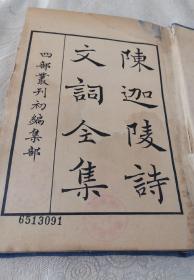 陳迦陵詩
文詞全集
四部叢刊初編集部
6513091